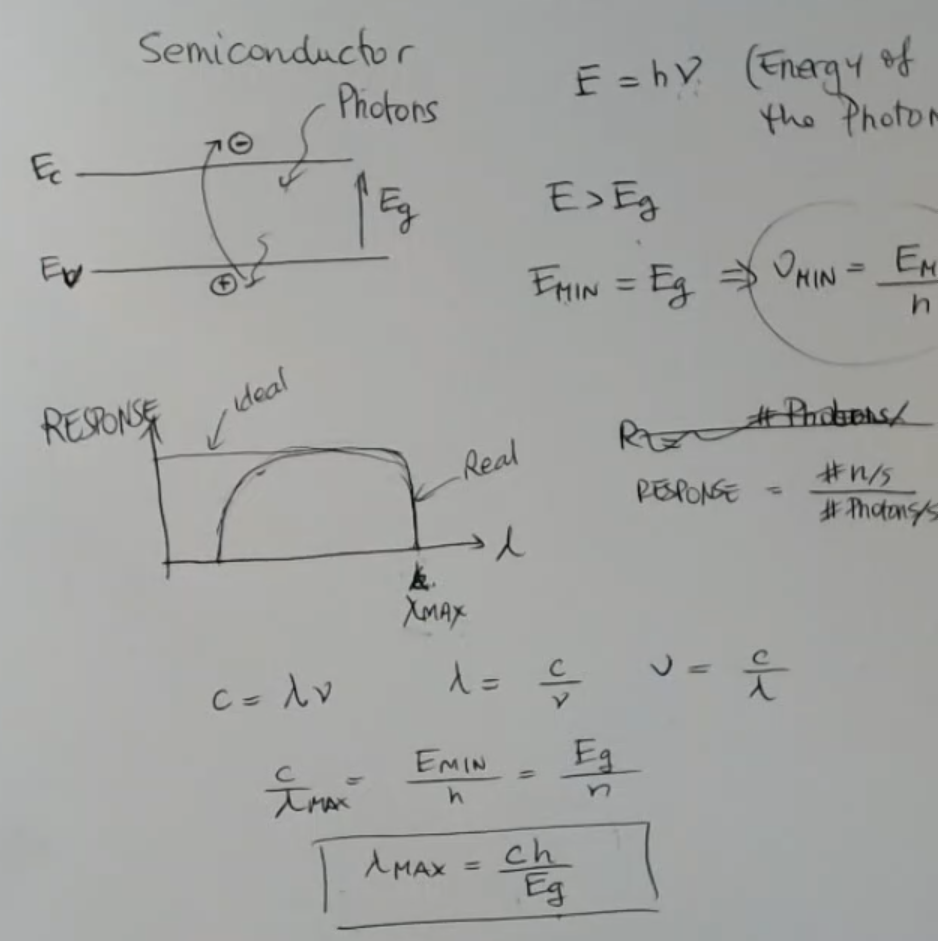 Semiconductor
Photons
Ec
⊖
Eg
Ev
⊕
E = hν (Energy of
the Photon
E > Eg
EMIN = Eg ⇒ υMIN = EM/h
RESPONSE
ideal
Real
λ
λMAX
# Photons/
RESPONSE = # n/s / # Photons/s
c = λν λ = c/ν ν = c/λ
c/λMAX = EMIN/h = Eg/h
λMAX = ch/Eg